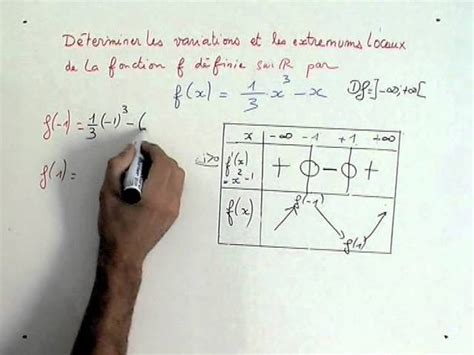 Déterminer les variations et les extremums locaux
de la fonction f définie sur ℝ par
f(x) = 1/3 x³ - x Df = ]-∞,+∞[
f(-1) = 1/3 (-1)³ - (
f(1) =
x -∞ -1 +1 +∞
f'(x) = x² - 1 + 0 - 0 +
f(x) f(-1) f(1)